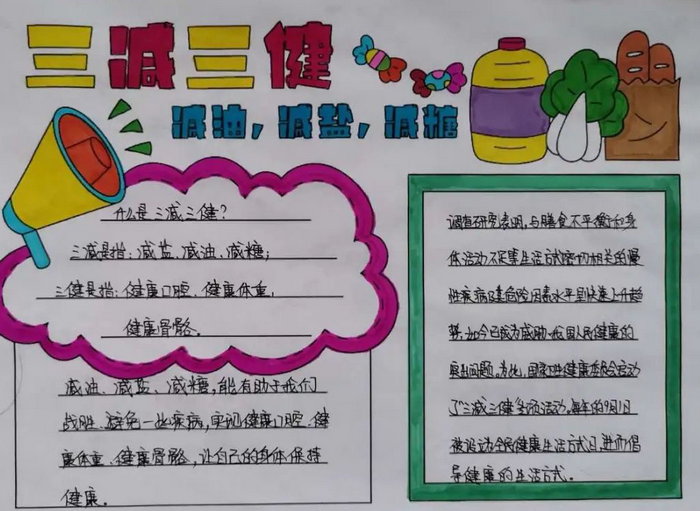 三减三健
减油，减盐，减糖
什么是三减三健？
三减是指：减盐、减油、减糖；
三健是指：健康口腔、健康体重，
健康骨骼。
减油、减盐、减糖，能有助于我们
战胜、避免一些疾病，实现健康口腔、健
康体重、健康骨骼，让自己的身体保持
健康。
调查研究表明，与膳食不平衡和身
体活动不足等生活方式密切相关的慢
性疾病及危险因素水平呈快速上升趋
势，如今已成为威胁我国人民健康的
突出问题。为此，国家健康委员会启动
了三减三健专项活动，每年的9月1日
被设为全民健康生活方式日，进而倡
导健康的生活方式。